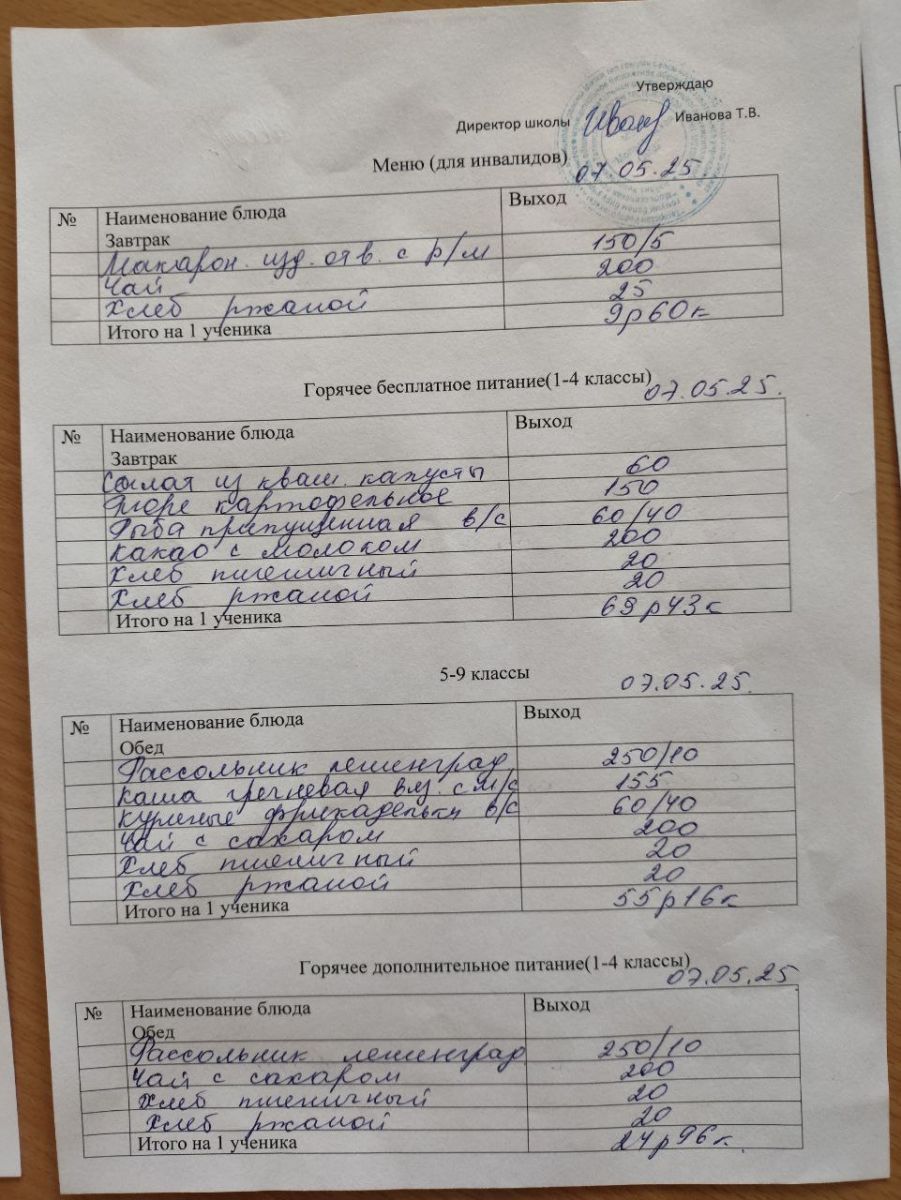 Утверждаю
Директор школы Иванова Т.В.
Меню (для инвалидов) 07.05.25
№ Наименование блюда Выход
Завтрак
Макарон. изд. отв. с р/м 150/5
Чай 200
Хлеб ржаной 25
Итого на 1 ученика 9р60к
Горячее бесплатное питание(1-4 классы) 07.05.25.
№ Наименование блюда Выход
Завтрак
Салат из кваш. капусты 60
Пюре картофельное 150
Рыба припущенная в/с 60/40
Какао с молоком 200
Хлеб пшеничный 20
Хлеб ржаной 20
Итого на 1 ученика 69р43к
5-9 классы 07.05.25.
№ Наименование блюда Выход
Обед
Рассольник ленинград 250/10
Каша гречневая вяз. с м/с 155
Куриные фрикадельки в/с 60/40
Чай с сахаром 200
Хлеб пшеничный 20
Хлеб ржаной 20
Итого на 1 ученика 55р16к
Горячее дополнительное питание(1-4 классы) 07.05.25
№ Наименование блюда Выход
Обед
Рассольник ленинград 250/10
Чай с сахаром 200
Хлеб пшеничный 20
Хлеб ржаной 20
Итого на 1 ученика 24р96к.